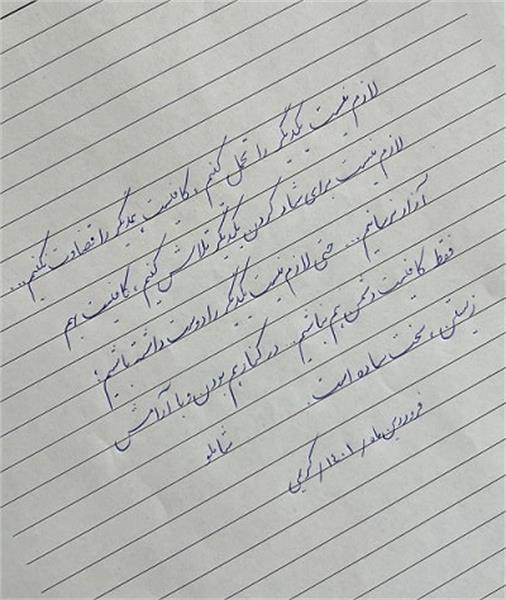 لازم نیست یکدیگر را تحمل کنیم، کافیست همدیگر را قضاوت نکنیم...
لازم نیست برای شاد کردن یکدیگر تلاش کنیم، کافیست بهم
آزار نرسانیم... حتی لازم نیست یکدیگر را دوست داشته باشیم؛
فقط کافیست دشمن هم نباشیم. در کنار هم بودن و با آرامش
زیستن، سخت ساده است.
شاملو
فروردین ماه/۱۴۰۱/کریمی